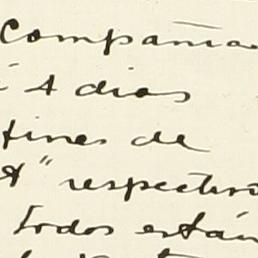 Compañía
4 dias
fines de
A" respectiv
todos están